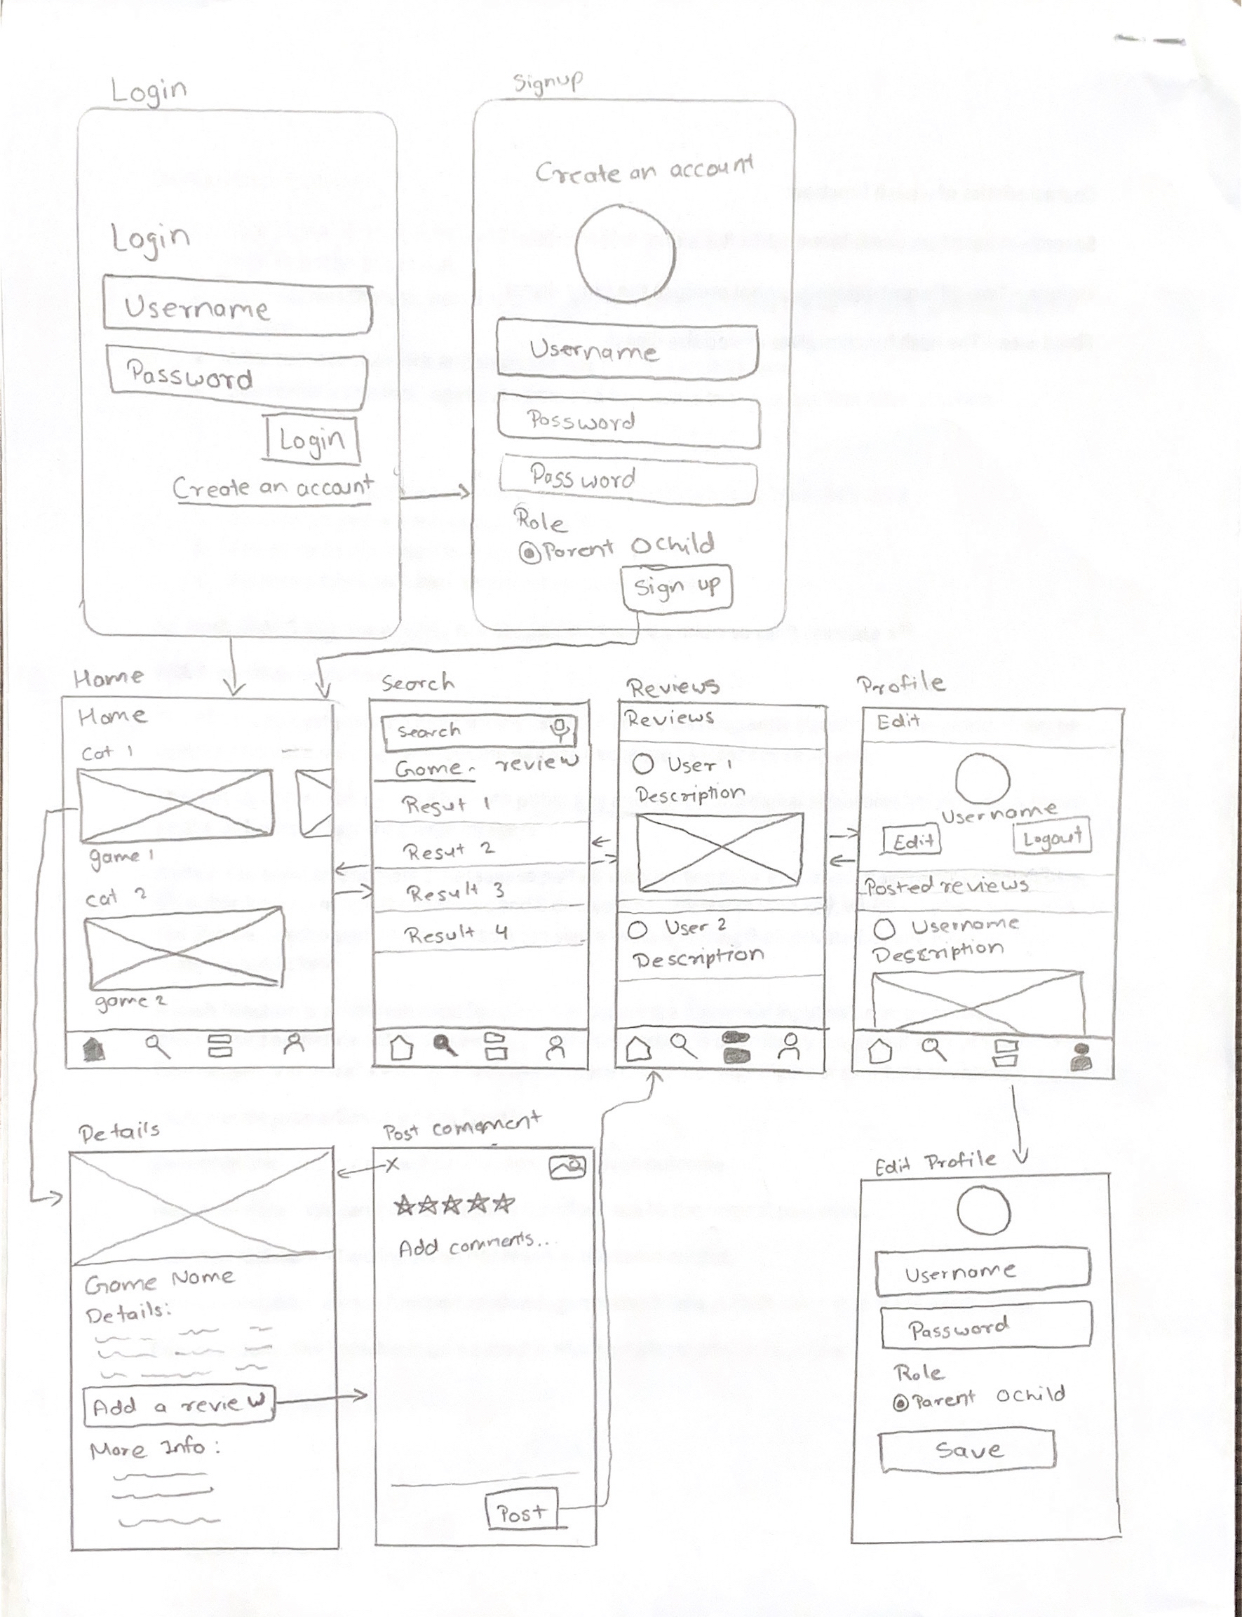 Login
Login
Username
Password
Login
Create an account
Signup
Create an account
Username
Password
Password
Role
Parent Child
Sign up
Home
Home
Cat 1
game 1
cat 2
game 2
Search
search
Game review
Resut 1
Resut 2
Result 3
Result 4
Reviews
Reviews
User 1
Description
User 2
Description
Profile
Edit
Username
Edit Logout
Posted reviews
Username
Description
Details
Game Name
Details:
Add a review
More Info:
Post comement
X
Add comments...
Post
Edit Profile
Username
Password
Role
Parent Child
Save